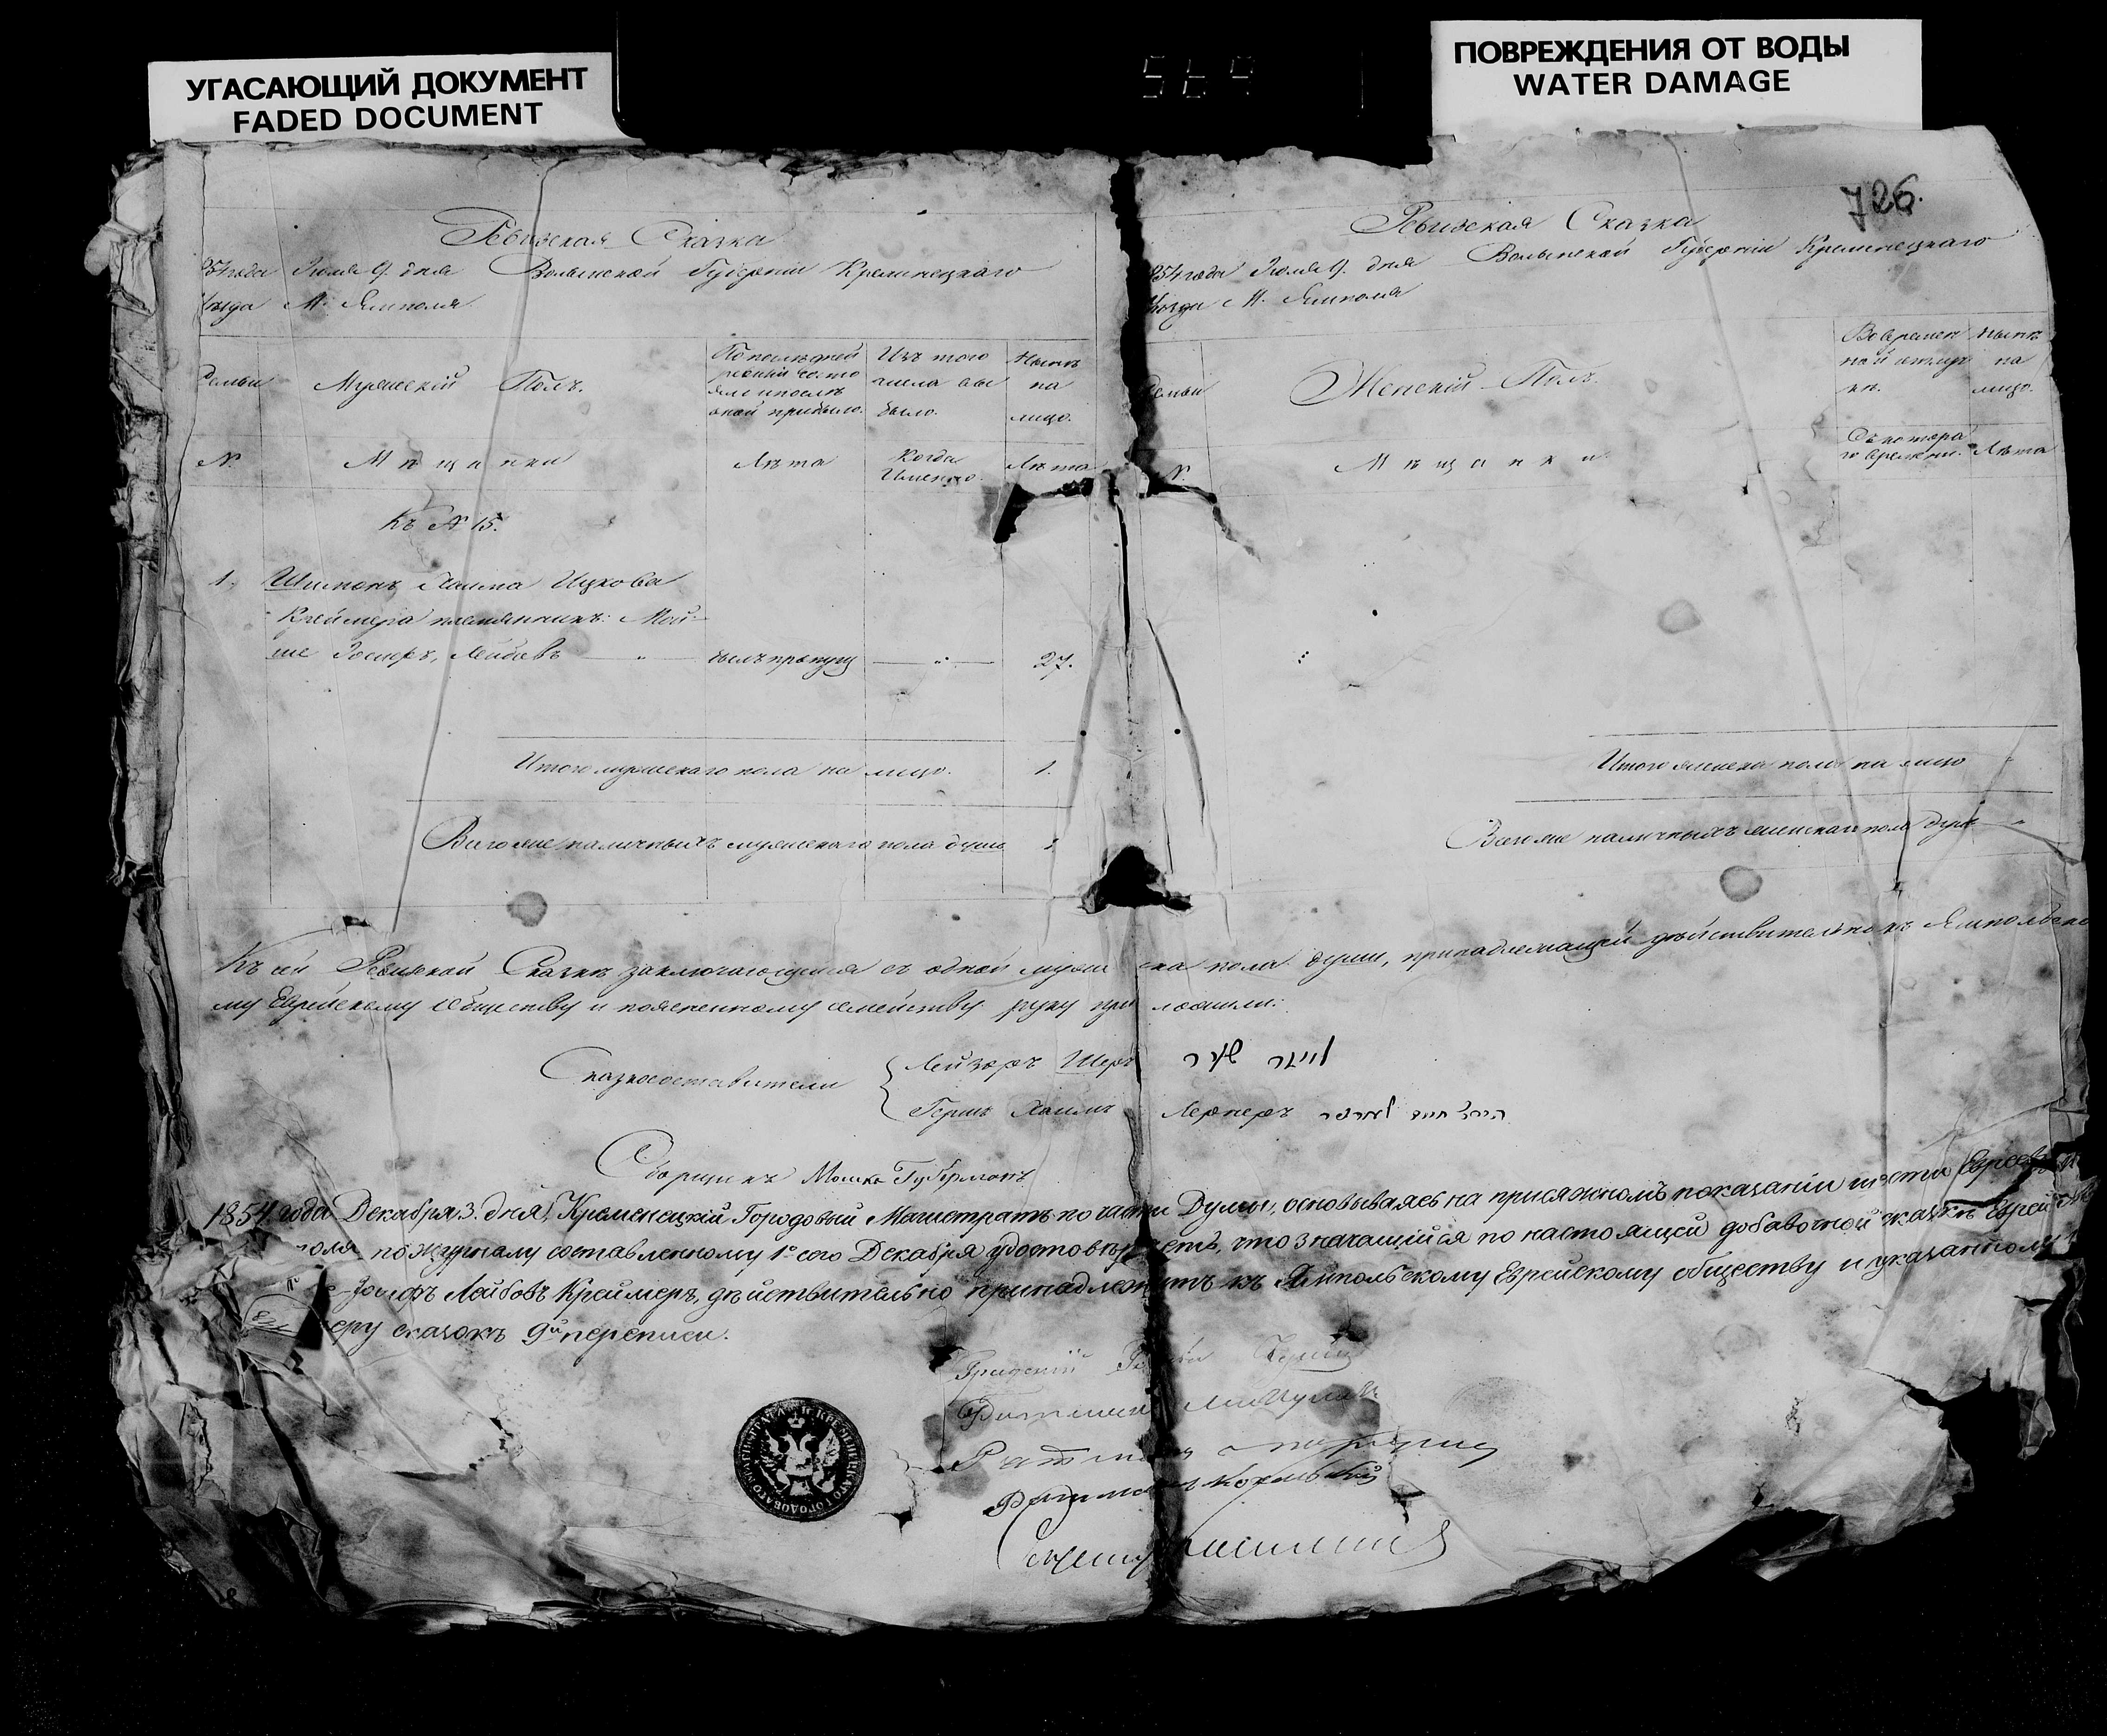 УГАСАЮЩИЙ ДОКУМЕНТ
FADED DOCUMENT
ПОВРЕЖДЕНИЯ ОТ ВОДЫ
WATER DAMAGE
726.
Ревизская Сказка
года Июля 9. дня Волынской Губернiи Кременецкаго
уѣзда М. Ямполя
Семьи
Мужескiй Полъ.
По послѣдней
ревизiи состо
яло и послѣ
оной прибыло.
Изъ того
числа вы
было.
Нынѣ
на
лицо.
N.
Мѣщане
Лѣта
Когда
Именно.
Лѣта
Къ N 15.
1. Шимонъ Хаима Ицкова
Креймера племянникъ: Мой-
ше Iосифъ, Лейбовъ былъ пропущ 27.
Итого мужескаго пола на лицо. 1.
Всего же наличныхъ мужескаго пола душъ 1
Ревизская Сказка
854 года Июля 9. дня Волынской Губернiи Кременецкаго
уѣзда М. Ямполя
Семьи
Женскiй Полъ.
Во времен
ной отлуч
кѣ.
Нынѣ
на
лицо.
N.
Мѣщанки
Съ котора
го времени.
Лѣта
Итого женска пола на лицо
Всего же наличныхъ женскаго пола душъ
Къ сей Ревизской Сказкѣ заключающейся въ одной мужеска пола души, принадлежащей дѣйствительно къ Ямпольско
му Еврейскому Обществу и поясненному семейству руку приложили:
Сказкосоставители
Лейзоръ Шеръ לייזר שער
Гершъ Хаимъ Лернеръ הירש חיים לערנר
Сборщикъ Мошко Губерманъ
1854. года Декабря 3. дня, Кременецкiй Городовый Магистратъ по части Думы, основываясь на присяжномъ показанiи шести Евреевъ
поля по журналу составленному 1го сего Декабря удостовѣряетъ, что значащiйся по настоящей добавочной сказкѣ Еврей
Iосифъ Лейбовъ Креймеръ, дѣйствительно принадлежитъ къ Ямпольскому Еврейскому обществу и указанному
еру сказокъ 9й переписи.
Градскiй
Ратманъ
Ратманъ